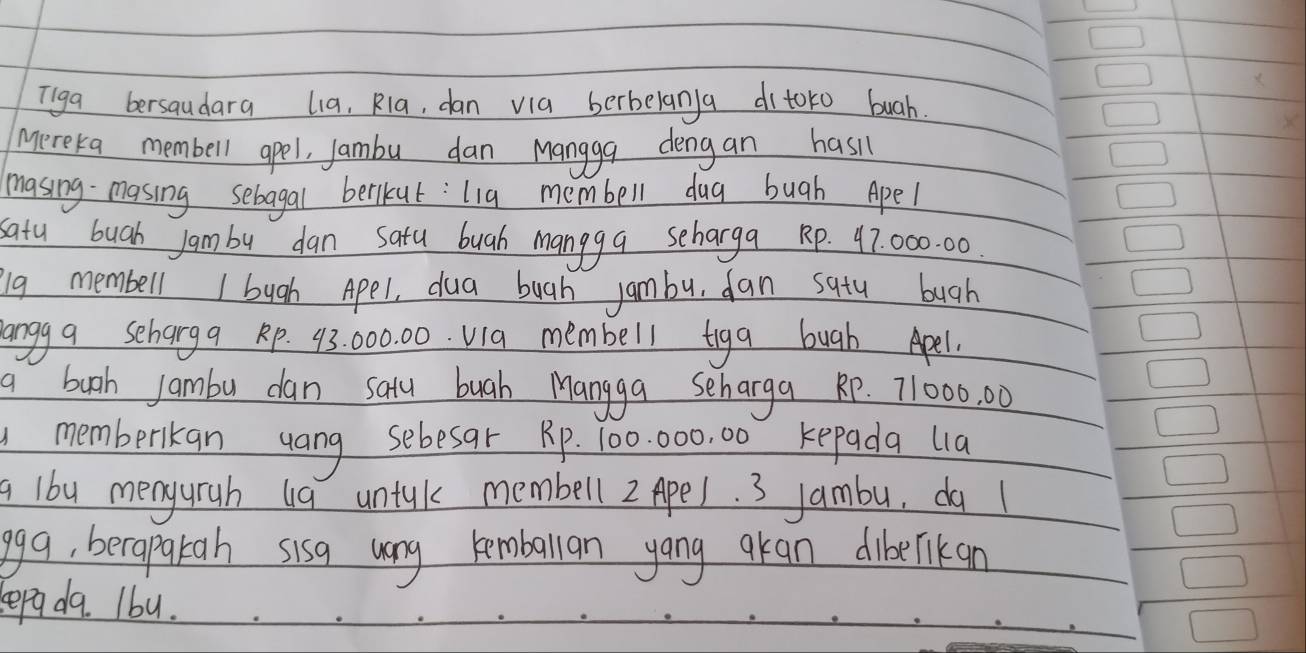 Tiga bersaudara Lia, Ria, dan Via berbelanja di toko buah.
Mereka membeli apel, Jambu dan Mangga dengan hasil
masing-masing sebagai berikut : Lia membeli dua buah Apel
satu buah jambu dan satu buah mangga seharga Rp. 47.000.00.
Ria membeli 1 buah Apel, dua buah jambu, dan satu buah
angga seharga Rp. 43.000.00. Via membeli tiga buah Apel,
a buah Jambu dan satu buah Mangga seharga RP. 71000,00
u memberikan uang sebesar Rp. 100.000,00 kepada Lia
a Ibu menyuruh Lia untuk membeli 2 Apel. 3 Jambu, da 1
gga, berapakah sisa uang kembalian yang akan diberikan
kepada. Ibu. . . . . . . . . . . .